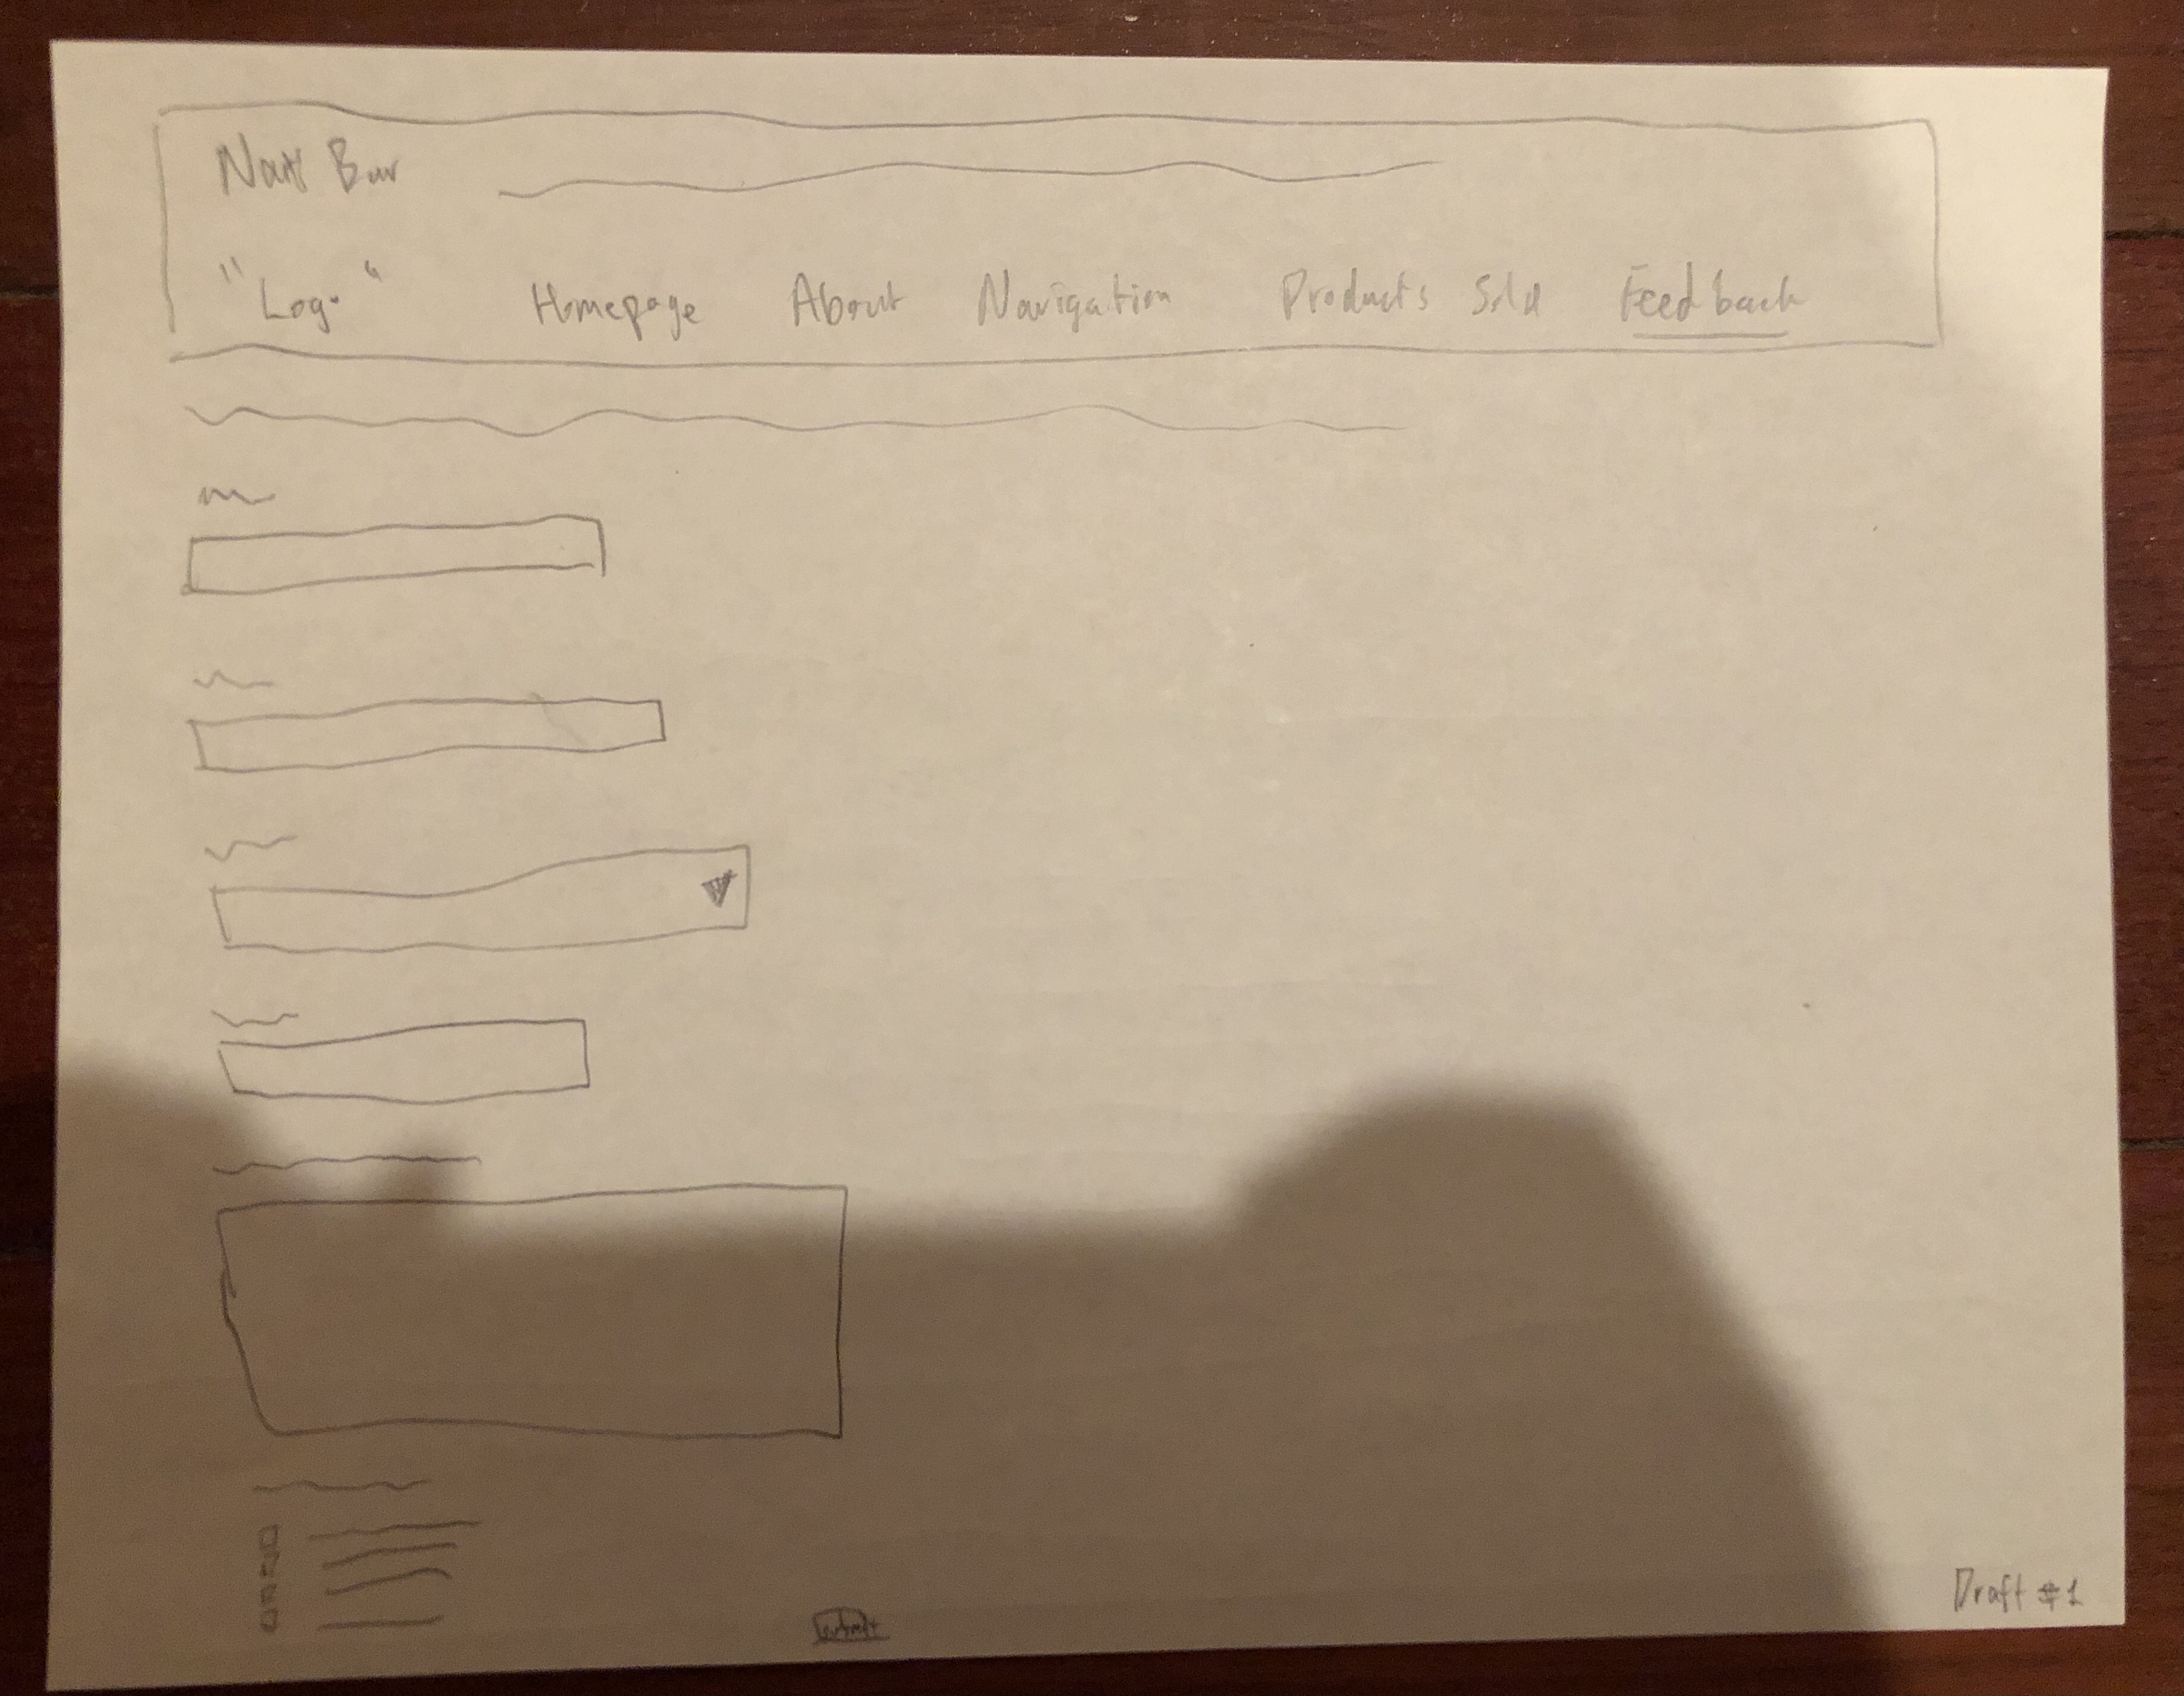 Nav Bar
"Logo" Homepage About Navigation Products Sold Feedback
Submit
Draft #1